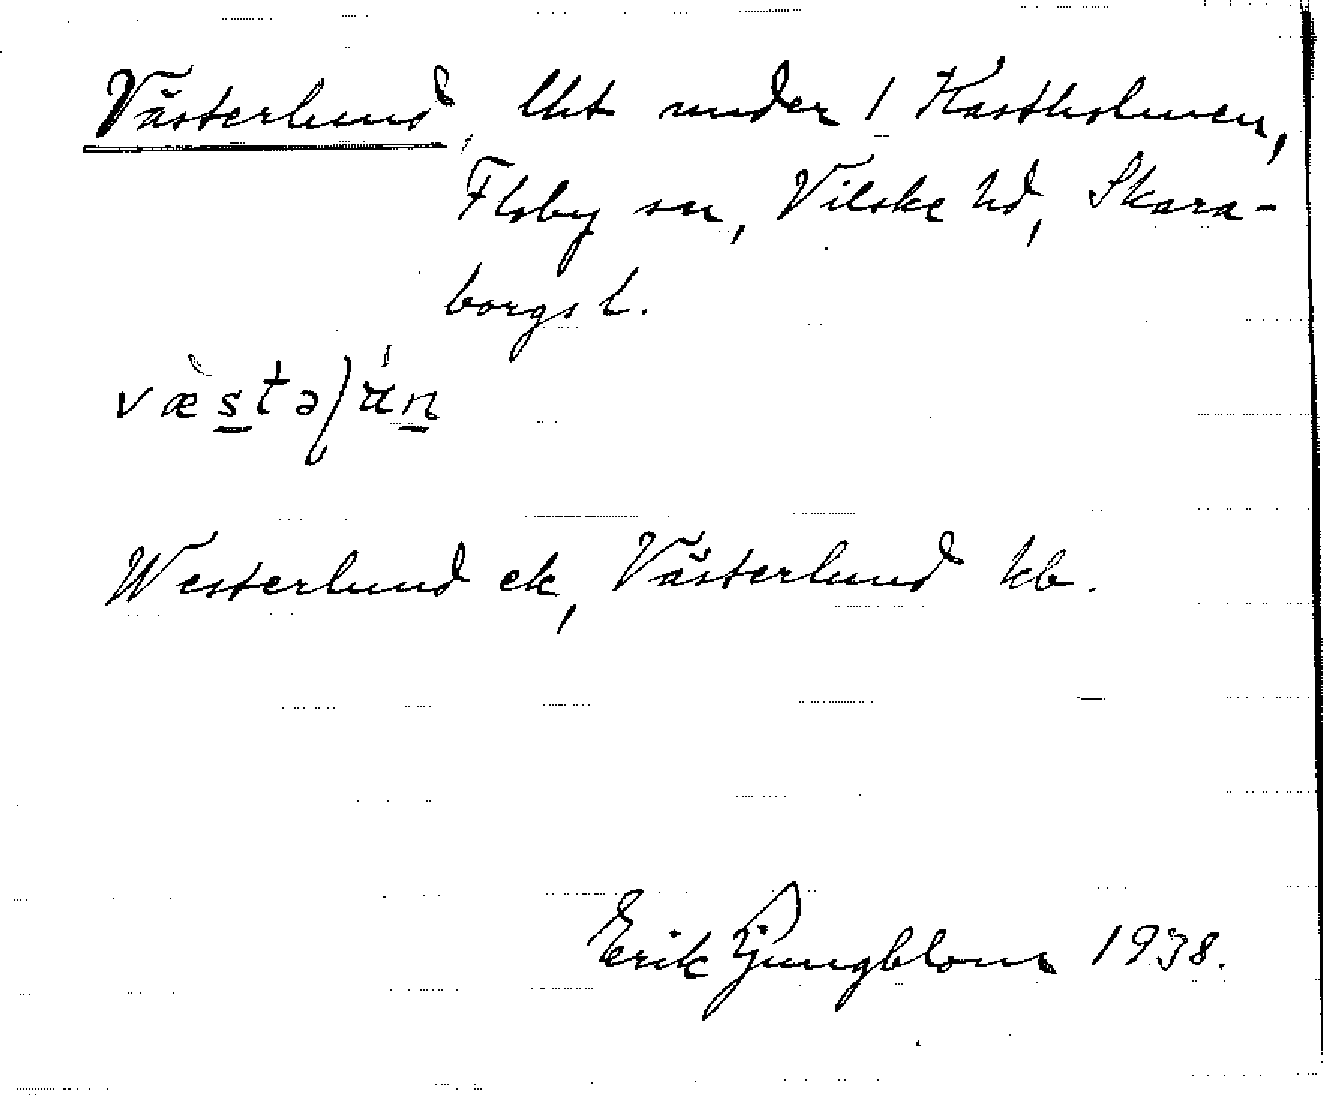 Västerlund, lht under 1 Kastholmen,
Floby sn, Vilske hd, Skara-
borgs l.
væstəɭún
Westerlund ek, Västerlund kb.
Erik Ljungblom 1938.